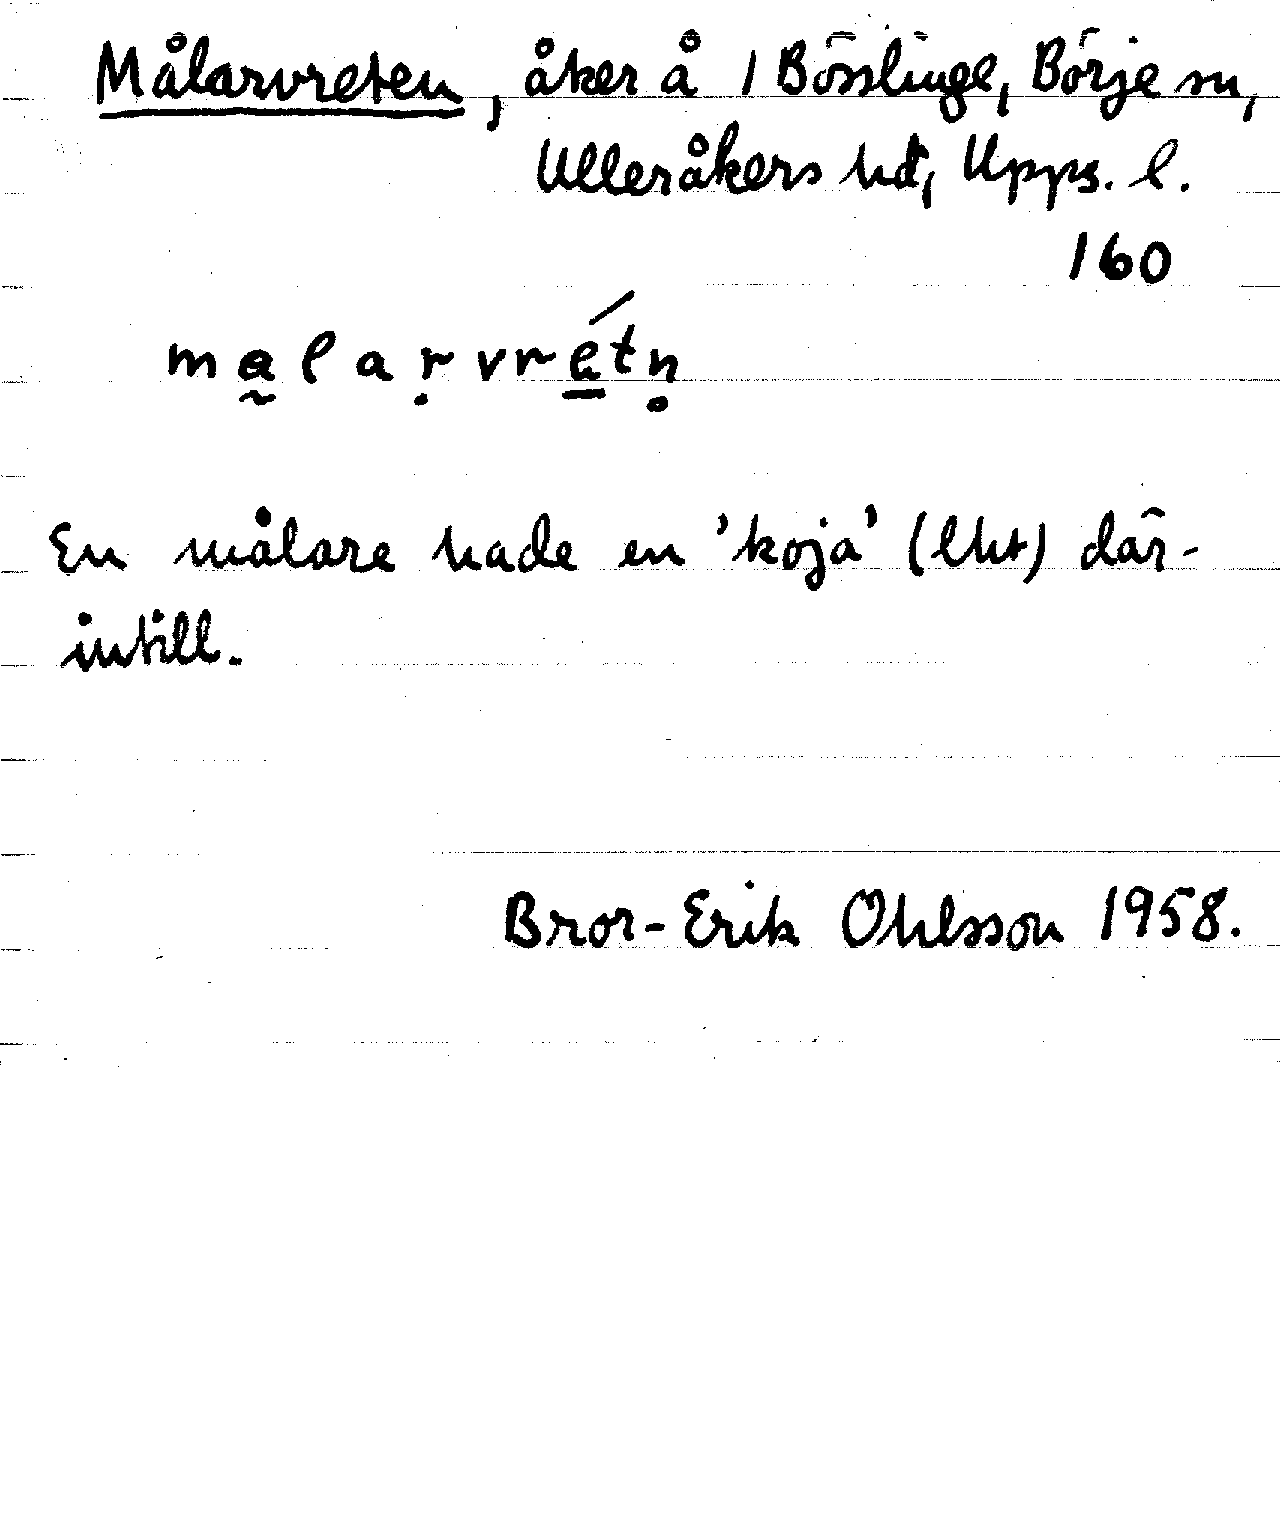 Målarvreten, åker å 1 Bösslinge, Börje sn,
Ulleråkers hd, Upps. l.
160
ma̰laṛvrétṇ
En målare hade en 'koja' (lht) där-
intill.
Bror-Erik Ohlsson 1958.